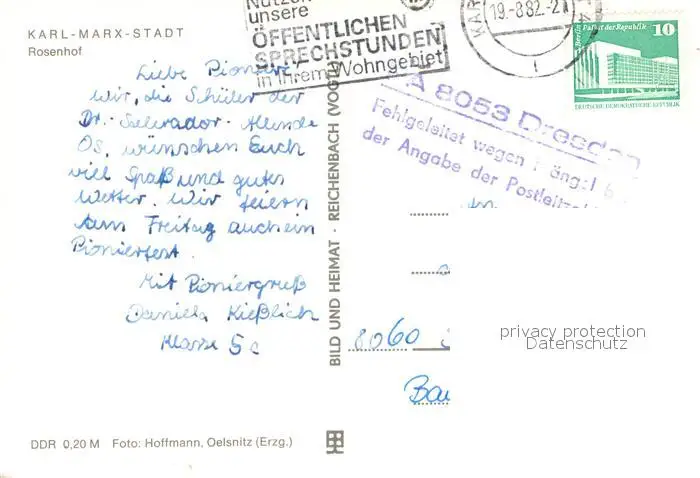 KARL-MARX-STADT
Rosenhof
unsere
ÖFFENTLICHEN
SPRECHSTUNDEN
in Ihrem Wohngebiet
19.-8.82.-2
10
Berlin Palast der Republik
DEUTSCHE DEMOKRATISCHE REPUBLIK
A 8053 Dresden
Fehlgeleitet wegen
der Angabe der
Liebe Pioniere!
Wir, die Schüler der
Dr.-Salvador-Allende
OS, wünschen Euch
viel Spaß und gutes
Wetter. Wir feiern
am Freitag auch ein
Pionierfest.
Mit Pioniergruß
Daniela Kießlich
Klasse 5c
BILD UND HEIMAT · REICHENBACH (VOGTL
8060
privacy protection
Datenschutz
DDR 0,20 M Foto: Hoffmann, Oelsnitz (Erzg.)